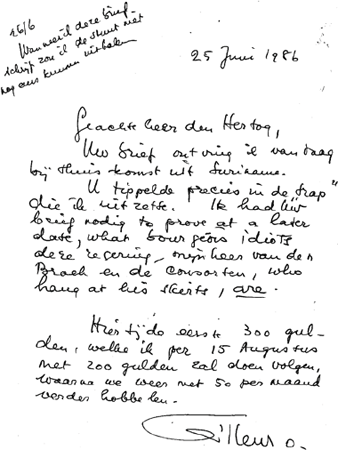 26/6
Wanneer ik deze brief
schrijf zou ik de stunt niet
nog eens kunnen uithalen
25 Juni 1986
Geachte heer den Hertog,
Uw brief ontving ik vandaag
bij thuiskomst uit Suriname.
U tippelde precies in de "trap"
die ik uitzette. Ik had uw
being nodig to prove at a later
date, what bourgeois idiots
deze regering, mijnheer van den
Broek en de consorten, who
hang at his skirts, are.
Hier tjdo eerste 300 gul-
den, welke ik per 15 Augustus
met 200 gulden zal doen volgen,
waarna we weer met 50 per maand
verder hobbelen.
Willem O.